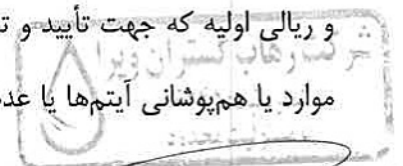 و ریالی اولیه که جهت تأیید و ت
شرکت رهاب گستران ویرا
موارد یا هم‌پوشانی آیتم‌ها یا عد